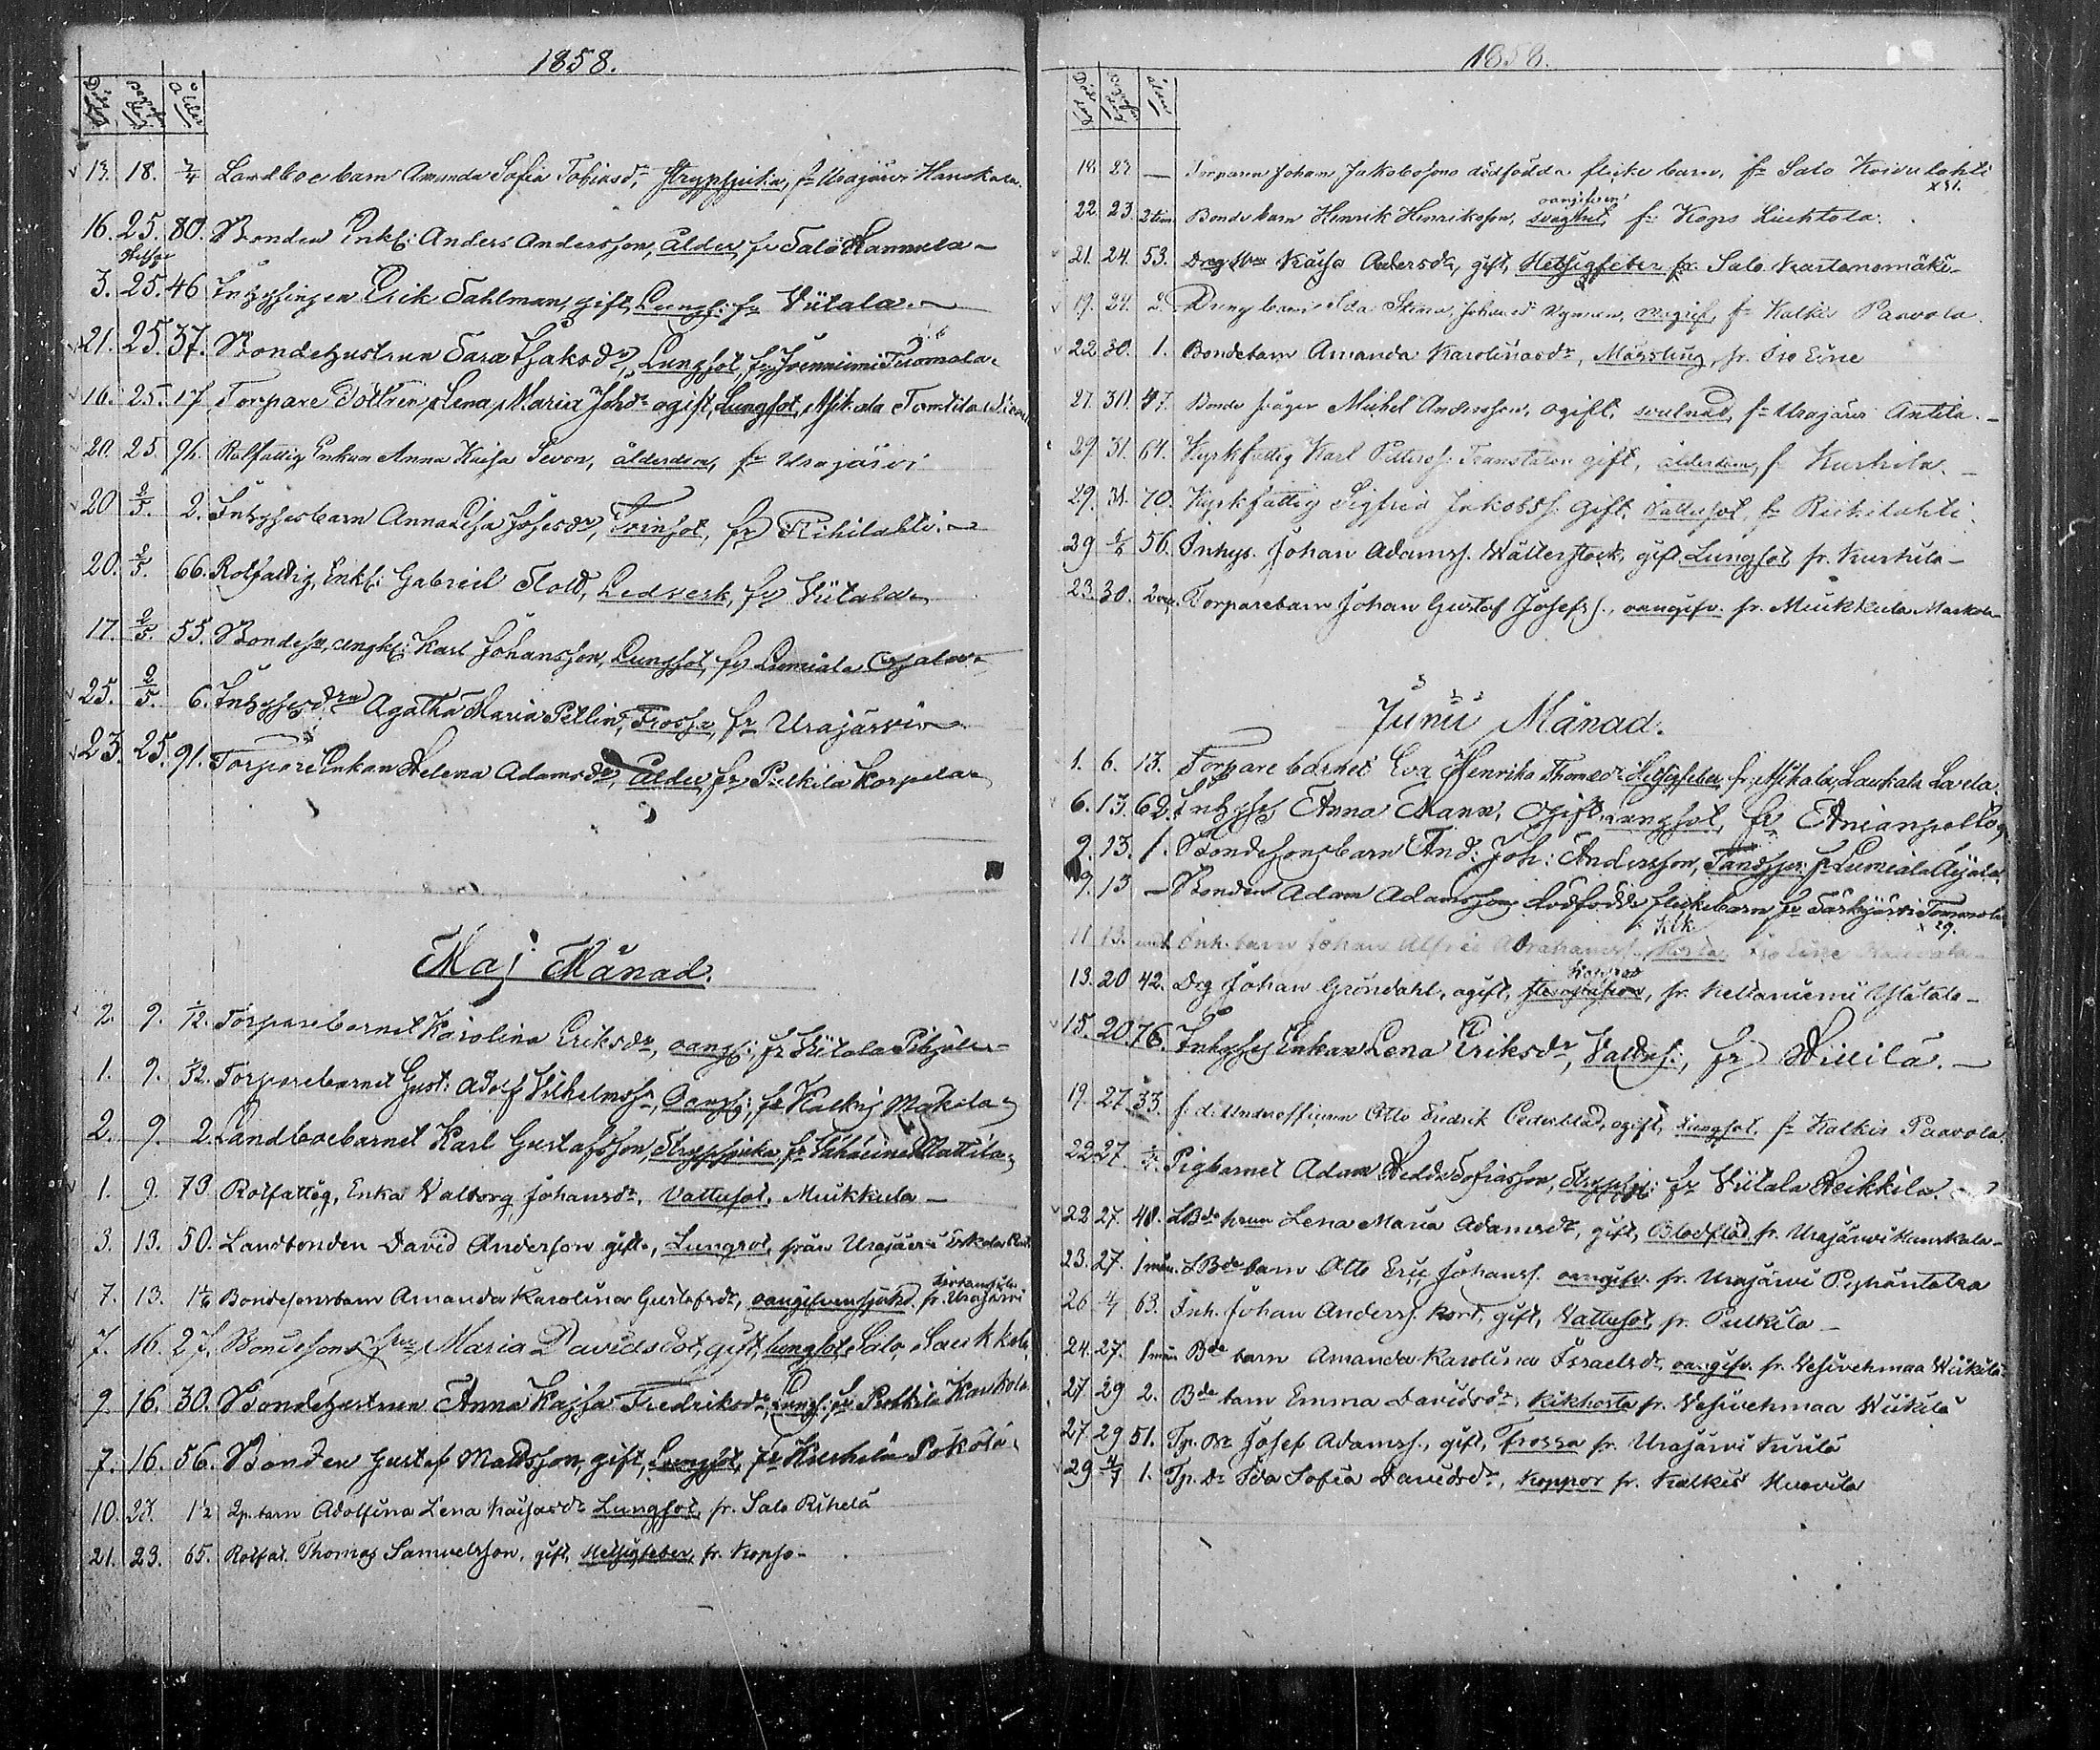 1858.
Död dag Begrafn. dag Ålder
13. 18. 3/4 Landboebarn Amanda Sofia Tobiasdr, Strypsjuka, fr Urajärvi Hanskala.
16. 25. 80. Bonden Enkl: Anders Andersson, ålder, fr Salo Hannula
3. 25. 46 Inhysingen Erik Dahlman, gift, Lungs: fr Viitala.
21. 25. 37. Bondehustrun Sara Isaksdr, Lungsot, fr Joenniemi Tuomola
16. 25. 17 Torpare Dottren Lena Maria Johdr ogift, Lungsot, Mikola Tomtila
20. 25. 96. Rotfattig Enkan Anna Kaisa Sevon, ålderdom, fr Urajärvi
20 2/5. 2. Inhysesbarn Anna Lisa Josefsdr, Tvinsot, fr Rihilahti.
20. 2/5. 66. Rotfattig, Enkl: Gabriel Flod, Ledverk, fr Viitala
17. 2/5. 55. Bondeson, ungkl: Karl Johansson, Lungsot, fr Lumiala
25. 2/5. 6. Inhysesdrn Agatha Maria Pellin, Frossa, fr Urajärvi
23. 25. 91. TorpareEnkan Helena Adamsdr, ålder, fr Pulkila Korpela
Maj Månad.
2. 9. 1/12. Torparebarnet Karolina Eriksdr, oangf:, fr Viitala
1. 9. Torparebarnet Gust: Adolf Vilhelmss., Oangf:, fr Kalkis Mäkilä
2. 9. 2. Landboebarnet Karl Gustafsson, Strypsjuka, fr Vähäeine Mattila
1. 9. 73 Rotfattig, Enka Valborg Johansdr, Vattusot, Muikkula
3. 13. 50. Landbonden David Anderson gift, Lungsot, från Urajärvi
7. 13. Bondesonsbarn Amanda Karolina Gustafsdr, oangifven sjukd. fr. Urajärvi
7. 16. 27. Bondesons hu Maria Davidsdot, gift, lungsot, Salo, Laukkala
9. 16. 30. Bondehustrun Anna Kajsa Fredriksdr, Lungs: fr Pulkila Kaukola
7. 16. 56. Bonden Gustaf Mattsson, gift, Lungsot, fr Kurhila
10. 23. 1½ Qp. barn Adolfina Lena Kaisasdr Lungsot, fr. Salo Rihelä
21. 23. 65. Rotfat. Thomas Samuelsson, gift, Hetsigfeber, fr. Kopso
1858.
Död dag Begrafn. dag ålder
18 23 — Torparen Johan Jakobssons dödfödda flicke barn, fr Salo Koivulahti
x 31.
oangifven
22. 23. 2 tim Bonde barn Henrik Henriksson, svaghet, fr Kops Liehtola.
21. 24. 53. Drag hu Kaisa Andersdr, gift, Hetsigfeber fr. Salo Kartanomäki
19. 24. 2. Dreng barn Ida Stina Johansdr Nyman, oangif, fr Kalkis Paavola.
22 30. 1. Bondebarn Amanda Karolinasdr, Mässling, fr. Iso Eine
27. 30. 47. Bonde Michel Andersson, ogift, svulnad, fr Urajärvi Antila.
29. 31. 64. Kyrkfattig Karl gift, ålderdom, fr Kurhila.
29. 31. 70. Kyrkfattig Sigfrid Jakobss. Gift, Vattusot, fr Riihilahti.
29 56. Inhys. Johan Adamss. Wätterstock, gift, Lungsot, fr. Kurhila
23. 30. Torparebarn Johan Gustaf Josefs., oangifv. fr. Muikkula Markola
Junii Månad.
1. 6. 13. Torpare barnet Eva Henrika Thomasdr Hetsigfeber, fr Mikola, Laukala Lavela.
6. 13. 62. Inhyses Anna Mann, ogift, Lungsot, fr Anianpelto
9. 13. 1. Bondesonsbarn And: Joh: Andersson, Tandspr: fr Lumiala Äijälä.
9. 13 — Bonden Adam Adamssons dödfödde flickebarn fr Särkijärvi Tommola
Kik
x 29.
11 13. Inh. barn Johan Alfred Abrahamss. Hosta, Iso Eine
Koppor
13. 20 42. Drg Johan Gröndahl, ogift, fr. Keltaniemi Ylätalo
15. 20. 76. Inhyses Enkan Lena Eriksdr, Vattus:, fr Villilä.
19. 27 33. f. d. Underofficeren Otto Fredrik Cederblad, ogift, Lungsot, fr Kalkis Paavola
22 27 Pigbarnet Adam Tobiasson, Strypsj: fr Viitala Heikkilä.
22 27. 48. LBde hrun Lena Maria Adamsdr, gift, Blodflöd, fr. Urajärvi Hanskala
23. 27. 1 mån. LBde barn Otto Eric Johanss. oangifv. fr. Urajärvi
26 4/7 63. Inh. Johan Anderss. Kort, gift, Vattusot, fr. Pulkila
24. 27. 1 mån Bde barn Amanda Karolina Israelsdr, oangifv. fr. Vesivehmaa Wiikilä
27. 29 2. Bde barn Emma Davidsdr, Kikhosta fr. Vesivehmaa Wiikilä
27. 29 51. Tp. Josef Adamss., gift, Frossa fr. Urajärvi
29 4/7 1. Tp. Dr Ida Sofia Davidsdr, Koppor fr. Kalkis Huovila